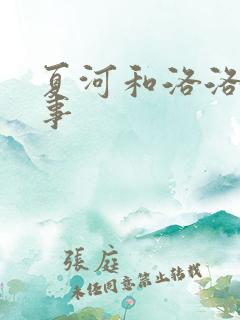 夏河和洛洛
事
張庭
未经同意禁止转载